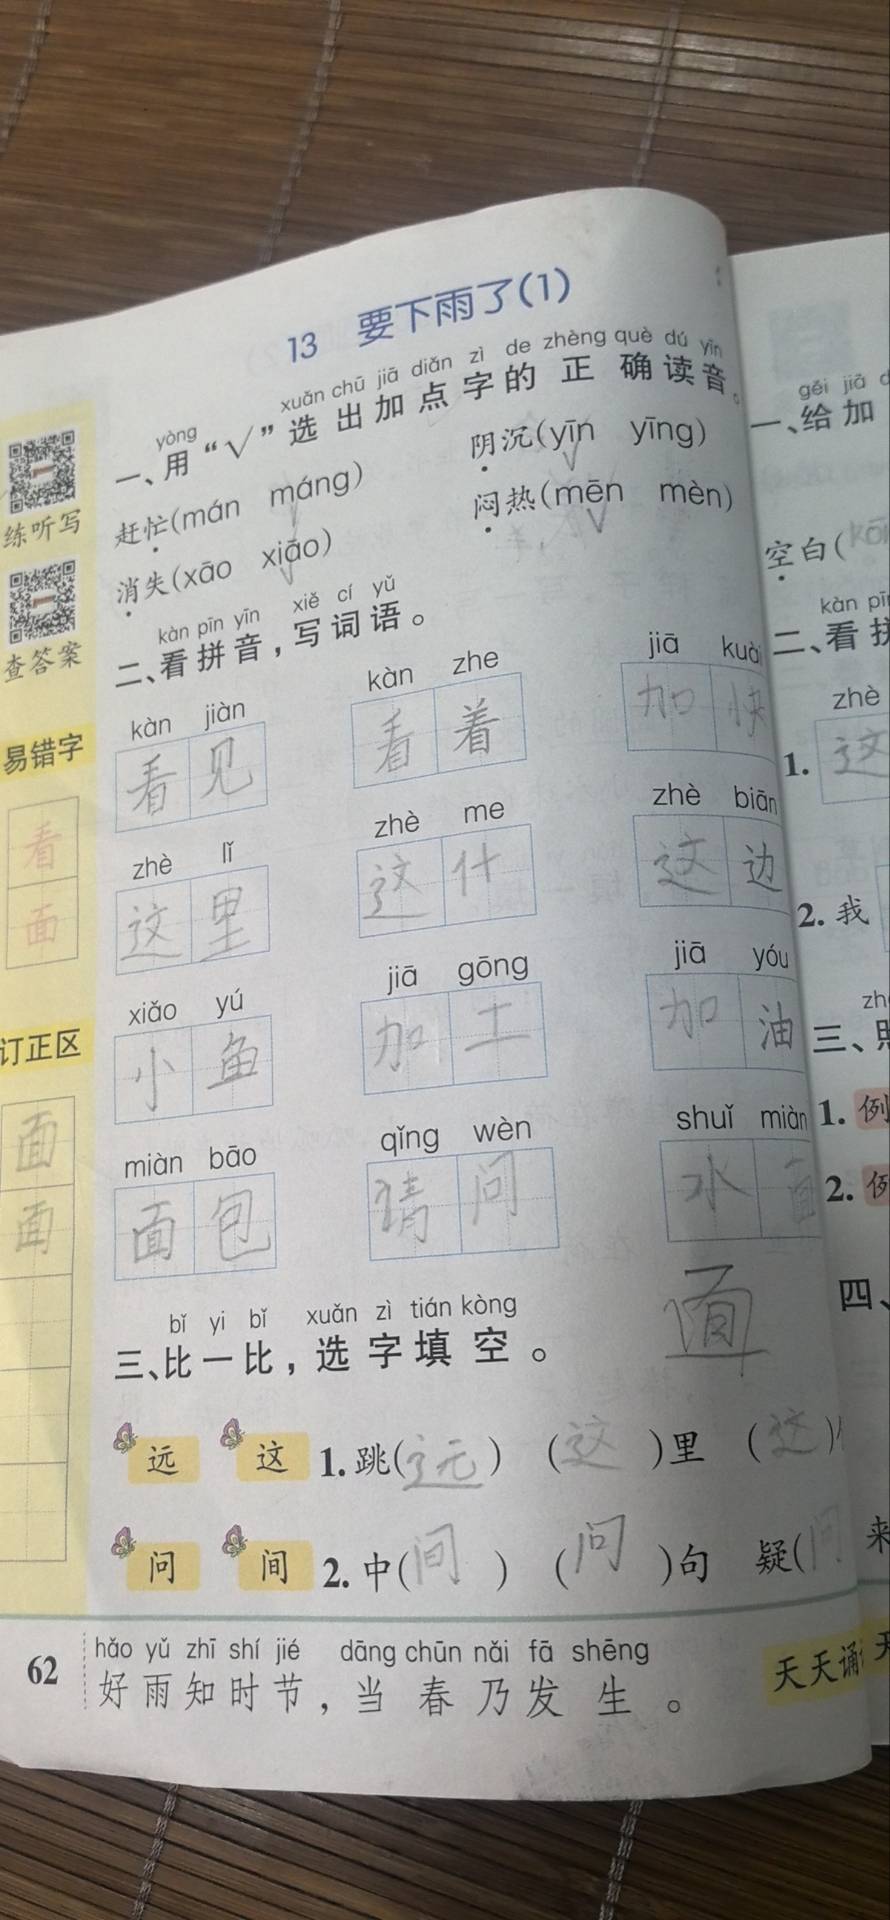 13 要下雨了(1)
yòng xuǎn chū jiā diǎn zì de zhèng què dú yīn
一、用“√”选出加点字的正确读音。
赶忙(mán máng) 阴沉(yīn yīng)
消失(xāo xiāo) 闷热(mēn mèn)
kàn pīn yīn xiě cí yǔ
二、看拼音,写词语。
kàn jiàn kàn zhe jiā kuài
看见 看着 加快
zhè lǐ zhè me zhè biān
这里 这什 这边
xiǎo yú jiā gōng jiā yóu
小鱼 加工 加油
miàn bāo qǐng wèn shuǐ miàn
面包 请问 水面
面
bǐ yi bǐ xuǎn zì tián kòng
三、比一比,选字填空。
远 这 1. 跳(远) (这)里 (这)
问 间 2. 中(间) (问)句 疑(问
62
hǎo yǔ zhī shí jié dāng chūn nǎi fā shēng
好雨知时节,当春乃发生。
天天诵
练听写
查答案
易错字
看
面
订正区
面
面
gěi jiā
一、给加
空白(
kàn
二、看
zhè
1. 这
2. 我
三、
1. 例
2.
四、
来
天